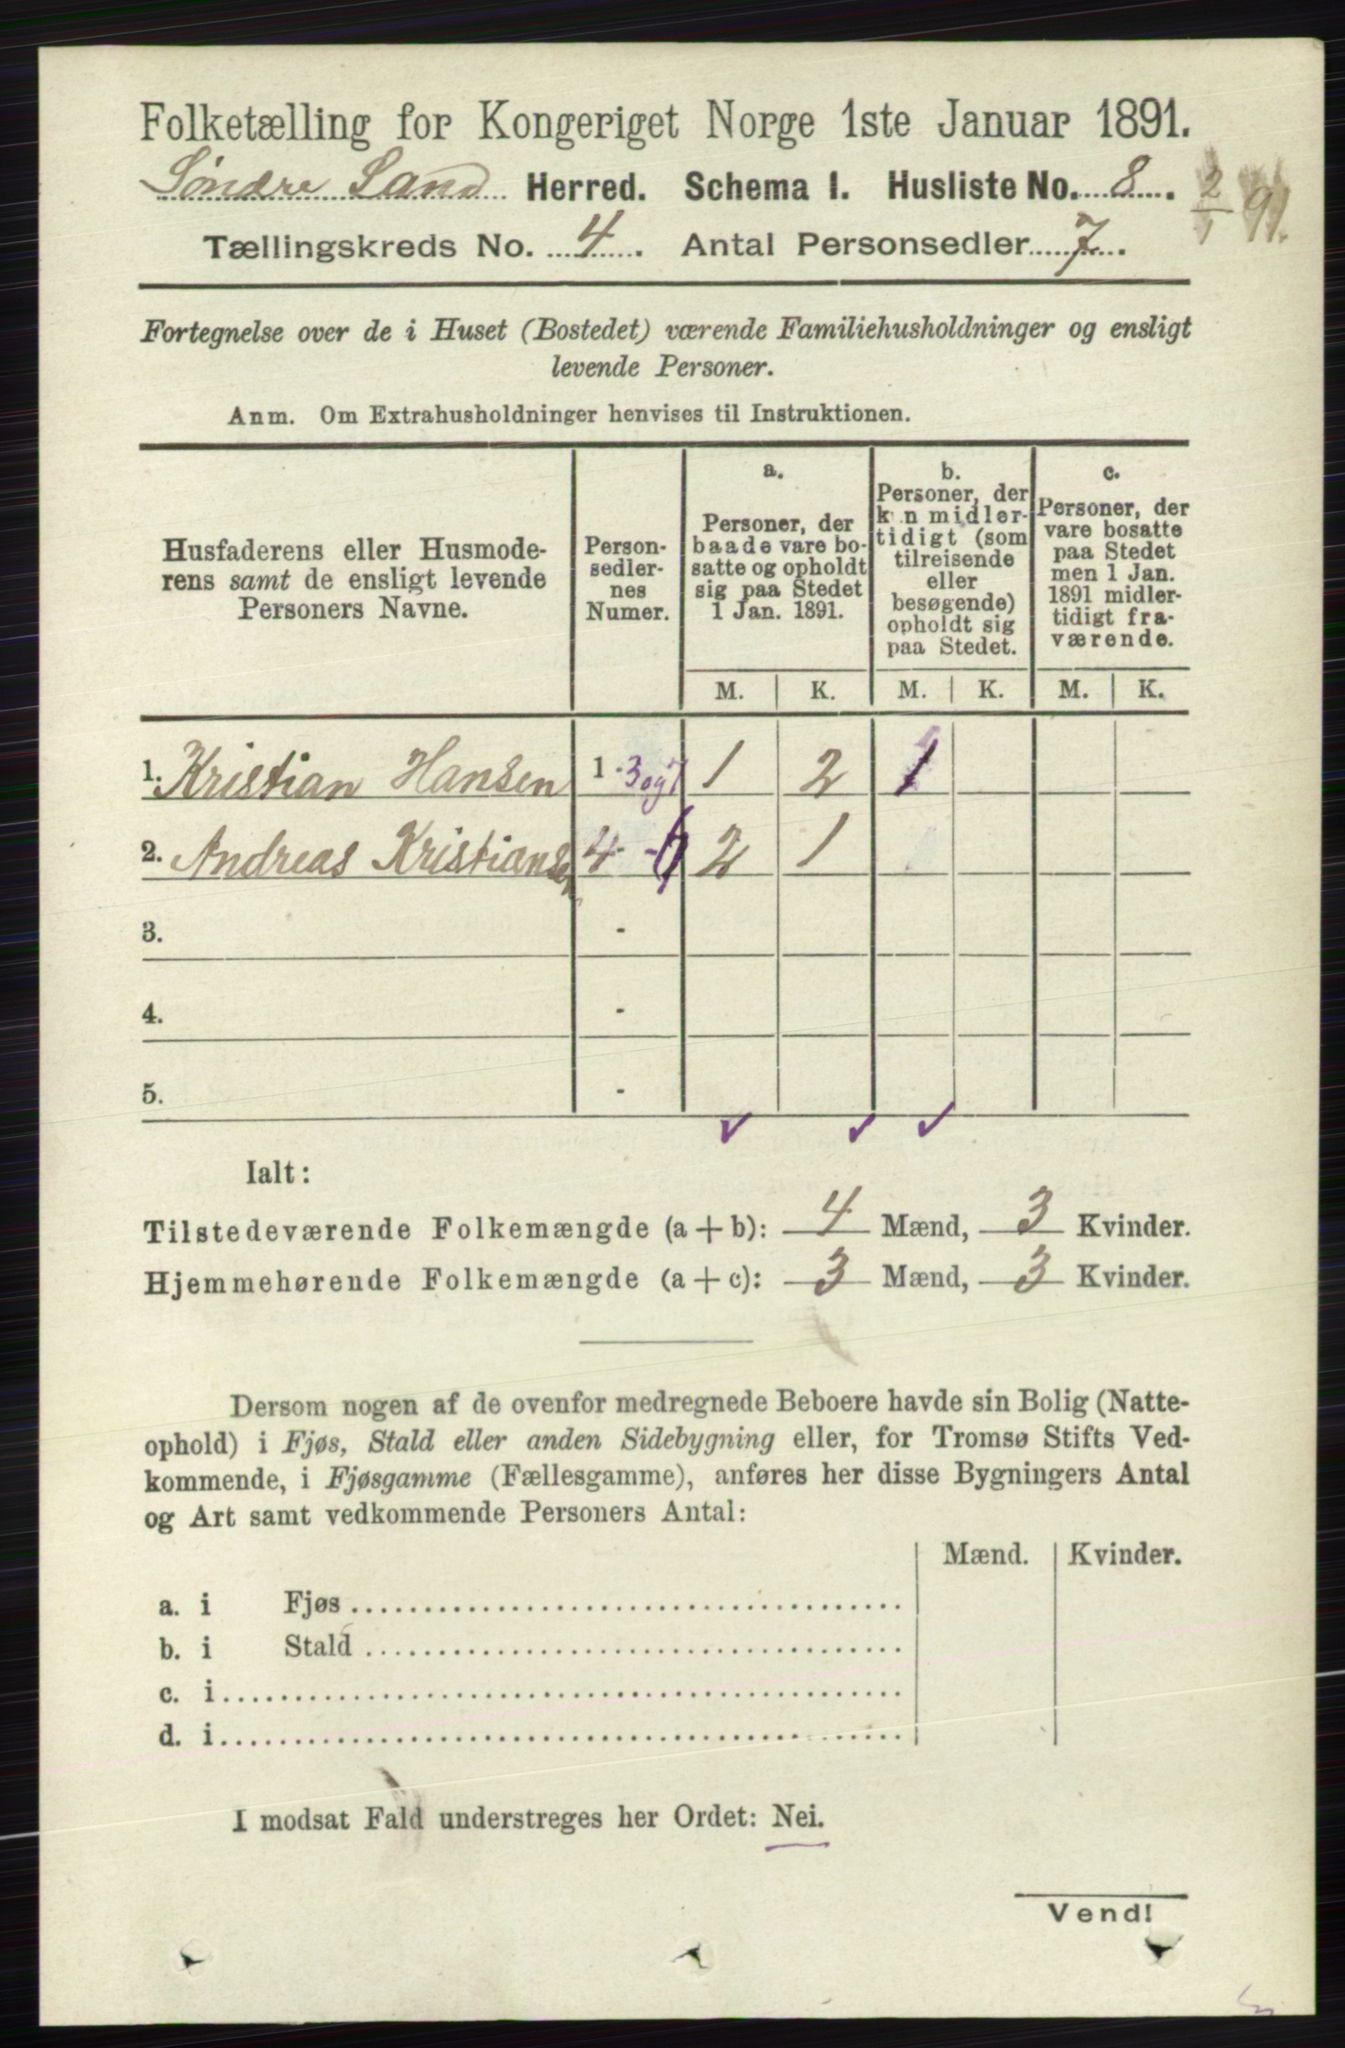 Folketælling for Kongeriget Norge 1ste Januar 1891.
Søndre Land Herred. Schema I. Husliste No. 8. 2/1 91.
Tællingskreds No. 4. Antal Personsedler 7.
Fortegnelse over de i Huset (Bostedet) værende Familiehusholdninger og ensligt
levende Personer.
Anm. Om Extrahusholdninger henvises til Instruktionen.
Husfaderens eller Husmode-
rens samt de ensligt levende
Personers Navne.
Person-
sedler-
nes
Numer.
a.
Personer, der
baade vare bo-
satte og opholdt
sig paa Stedet
1 Jan. 1891.
b.
Personer, der
kun midler-
tidigt (som
tilreisende
eller
besøgende)
opholdt sig
paa Stedet.
c.
Personer, der
vare bosatte
paa Stedet
men 1 Jan.
1891 midler-
tidigt fra-
værende.
M. K. M. K. M. K.
1. Kristian Hansen 1 - 3 og 7 1 2 1
2. Andreas Kristiansen 4 - 6 2 1
3. -
4. -
5. -
Ialt:
Tilstedeværende Folkemængde (a + b): 4 Mænd, 3 Kvinder.
Hjemmehørende Folkemængde (a + c): 3 Mænd, 3 Kvinder.
Dersom nogen af de ovenfor medregnede Beboere havde sin Bolig (Natte-
ophold) i Fjøs, Stald eller anden Sidebygning eller, for Tromsø Stifts Ved-
kommende, i Fjøsgamme (Fællesgamme), anføres her disse Bygningers Antal
og Art samt vedkommende Personers Antal:
Mænd. Kvinder.
a. i Fjøs
b. i Stald
c. i
d. i
I modsat Fald understreges her Ordet: Nei.
Vend!